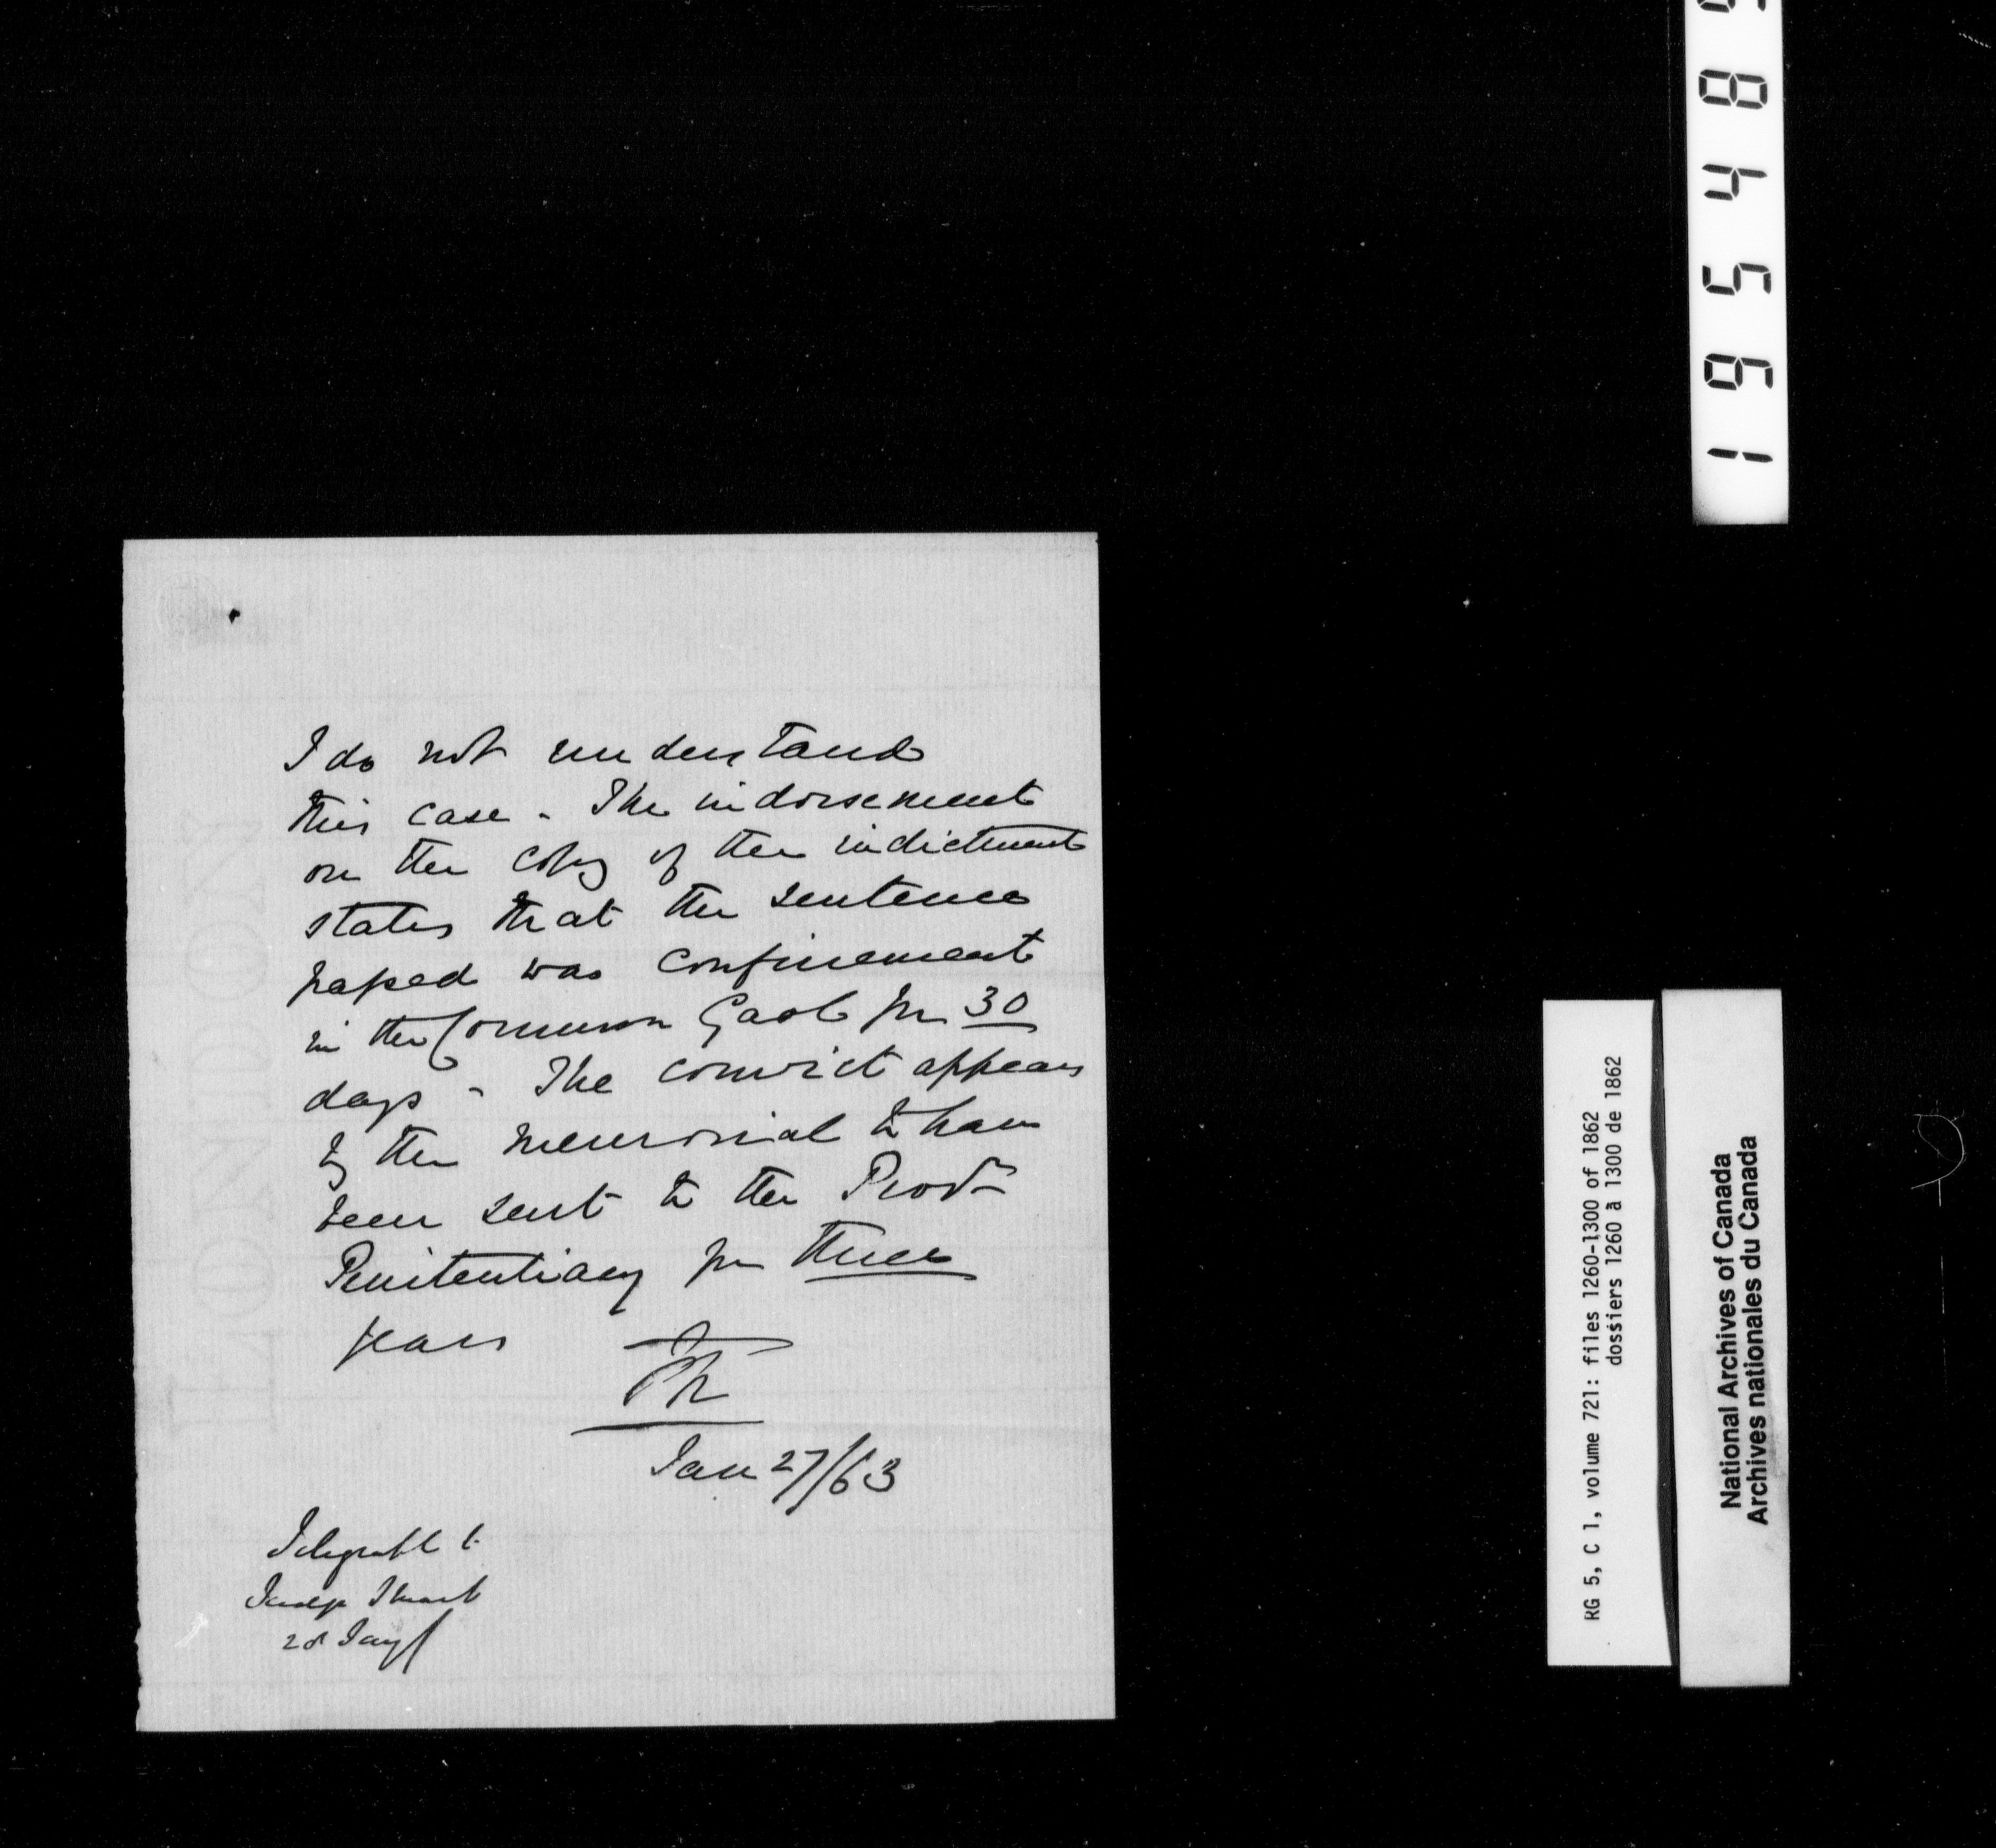 I do not understand
this case - The indorsement
on the copy of the indictment
states that the sentence
passed was confinement
in the Common Gaol for 30
days - The convict appears
by the memorial to have
been sent to the Prov.
Penitentiary for three
years
Jan 27/63
Telegraph to
Judge Stuart
28 Jany
LONDON
1 9 5 4 8
RG 5, C 1, volume 721: files 1260-1300 of 1862
dossiers 1260 à 1300 de 1862
National Archives of Canada
Archives nationales du Canada